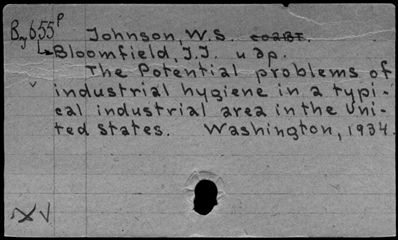 By655р Johnson, W.S. соавт.
Bloomfield, J.J. и др.
The Potential problems of
industrial hygiene in a typi-
cal industrial area in the Uni-
ted States. Washington, 1934.
XV